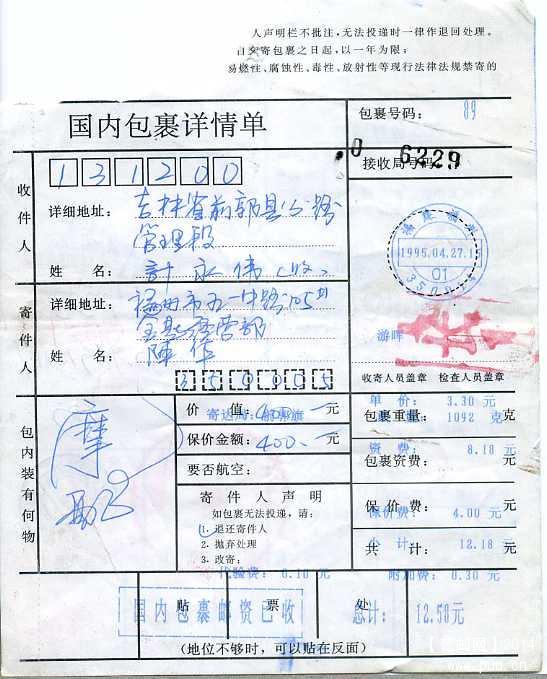 人声明栏不批注,无法投递时一律作退回处理。
自交寄包裹之日起,以一年为限;
易燃性、腐蚀性、毒性、放射性等现行法律法规禁寄的
国内包裹详情单
包裹号码: 89
0 6229
接收局号码:
收件人
131200
详细地址: 吉林省前郭县公路
管理段
姓 名: 計永偉(收)
福建福州
1995.04.27.1
01
350005
寄件人
详细地址: 福州市五一中路105#
经营部
姓 名: 陳华
350005
游晖
收寄人员盖章 检查人员盖章
单 价: 3.30 元
包内装有何物
摩
价 值: 400.— 元
寄达局:前郭旗
保价金额: 400.— 元
要否航空:
寄 件 人 声 明
如包裹无法投递,请:
1. 退还寄件人
2. 抛弃处理
3. 改寄:
包裹重量: 1092 克
资 费: 8.18 元
包裹资费: 元
保 价 费: 元
保价费: 4.00 元
共 计: 元
小 计: 12.18 元
代验费: 0.10 元
附加费: 0.30 元
贴 票 处
国内包裹邮资已收
总计: 12.58元
(地位不够时,可以贴在反面)